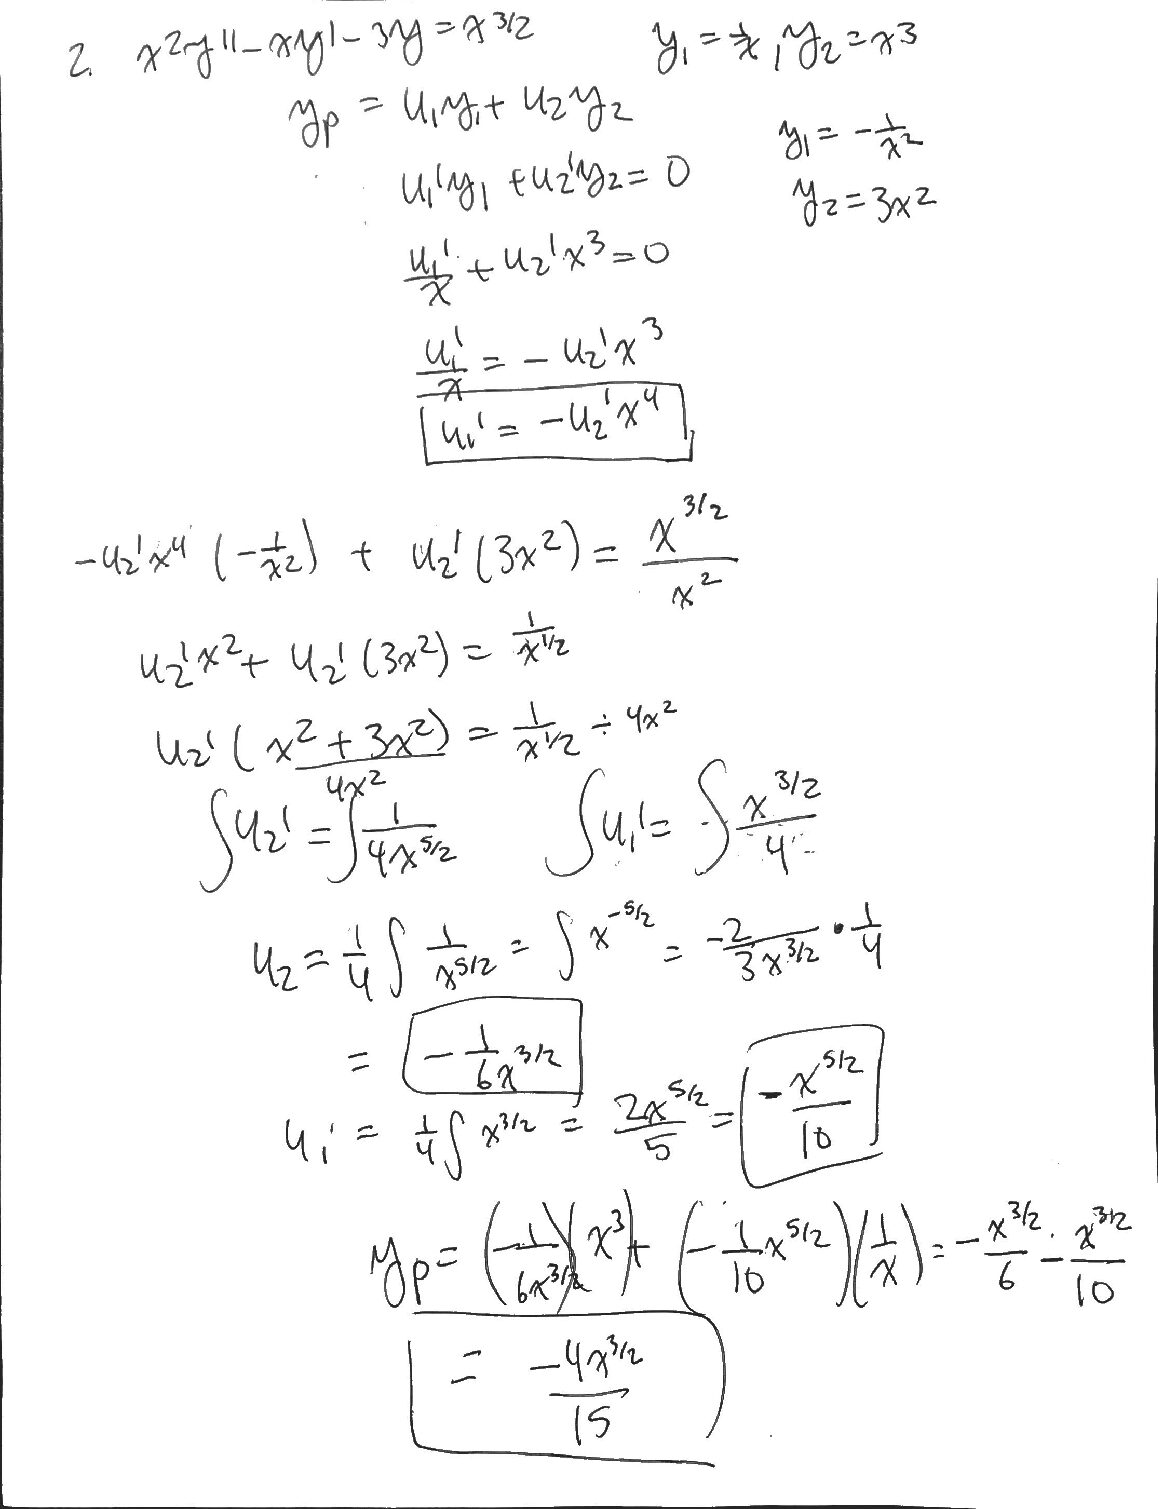 2. x²y'' - xy' - 3y = x^3/2    y₁ = 1/x , y₂ = x³
yp = u₁y₁ + u₂y₂
y₁ = -1/x²
u₁'y₁ + u₂'y₂ = 0
y₂ = 3x²
u₁'/x + u₂'x³ = 0
u₁'/x = - u₂'x³
u₁' = -u₂'x⁴
-u₂'x⁴ (-1/x²) + u₂'(3x²) = x^3/2 / x²
u₂'x² + u₂'(3x²) = 1/x^1/2
u₂'(x² + 3x²) = 1/x^1/2 ÷ 4x²
4x²
∫u₂' = ∫1/4x^5/2    ∫u₁' = -∫x^3/2 / 4
u₂ = 1/4 ∫ 1/x^5/2 = ∫x^-5/2 = -2/3x^3/2 · 1/4
= -1/6x^3/2
u₁ = 1/4 ∫x^3/2 = 2x^5/2 / 5 = -x^5/2 / 10
yp = (-1/6x^3/2)(x³) + (-1/10 x^5/2)(1/x) = -x^3/2 / 6 - x^3/2 / 10
= -4x^3/2 / 15